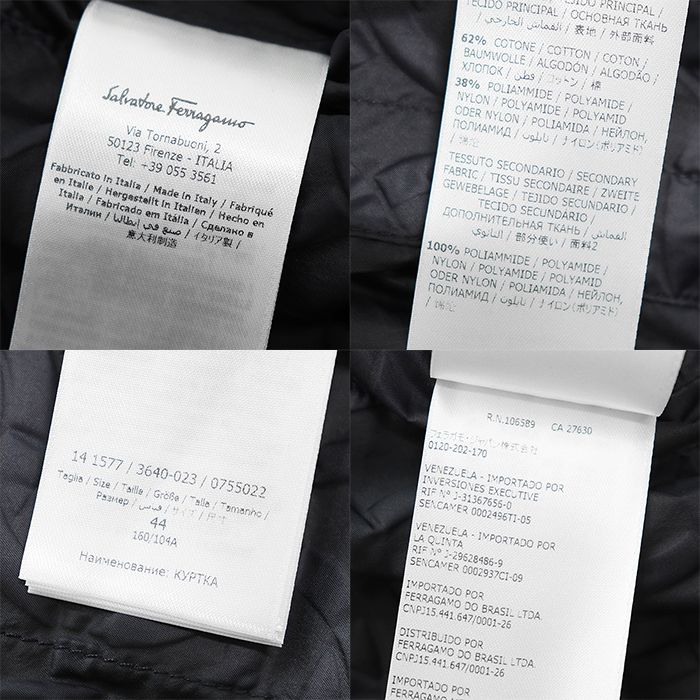 Salvatore Ferragamo
Via Tornabuoni, 2
50123 Firenze - ITALIA
Tel: +39 055 3561
Fabbricato in Italia / Made in Italy / Fabriqué
en Italie / Hergestellt in Italien / Hecho en
Italia / Fabricado em Itália / Сделано в
Италии / صنع في إيطاليا / イタリア製 /
意大利制造
TECIDO PRINCIPAL / ОСНОВНАЯ ТКАНЬ
/ القماش الخارجي / 表地 / 外部面料
62% COTONE / COTTON / COTON /
BAUMWOLLE / ALGODÓN / ALGODÃO /
ХЛОПОК / قطن / コットン / 棉
38% POLIAMMIDE / POLYAMIDE /
NYLON / POLYAMIDE / POLYAMID
ODER NYLON / POLIAMIDA / НЕЙЛОН,
ПОЛИАМИД / نايلون / ナイロン(ポリアミド)
/ 锦纶
TESSUTO SECONDARIO / SECONDARY
FABRIC / TISSU SECONDAIRE / ZWEITE
GEWEBELAGE / TEJIDO SECUNDARIO /
TECIDO SECUNDÁRIO /
ДОПОЛНИТЕЛЬНАЯ ТКАНЬ / القماش
الثانوي / 部分使い / 面料2
100% POLIAMMIDE / POLYAMIDE /
NYLON / POLYAMIDE / POLYAMID
ODER NYLON / POLIAMIDA / НЕЙЛОН,
ПОЛИАМИД / نايلون / ナイロン(ポリアミド)
/ 锦纶
14 1577 / 3640-023 / 0755022
Taglia / Size / Taille / Größe / Talla / Tamanho /
Размер / قياس / サイズ / 尺寸
44
160/104A
Наименование: КУРТКА
R.N.106589 CA 27630
フェラガモ・ジャパン株式会社
0120-202-170
VENEZUELA - IMPORTADO POR
INVERSIONES EXECUTIVE
RIF Nº J-31367656-0
SENCAMER 0002496TI-05
VENEZUELA - IMPORTADO POR
LA QUINTA
RIF Nº J-29628486-9
SENCAMER 0002937CI-09
IMPORTADO POR
FERRAGAMO DO BRASIL LTDA.
CNPJ15.441.647/0001-26
DISTRIBUIDO POR
FERRAGAMO DO BRASIL LTDA.
CNPJ15.441.647/0001-26
IMPORTADO POR